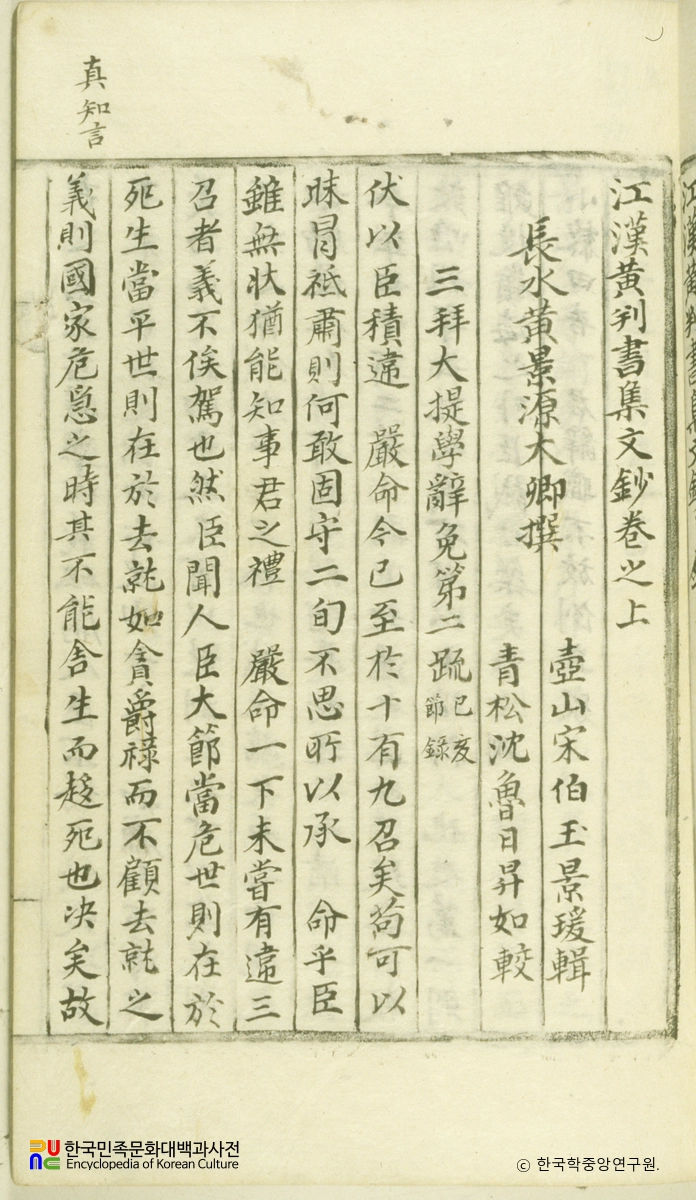 江漢黄判書集文鈔卷之上
長水黄景源大卿撰
壺山宋伯玉景瑗輯
青松沈魯日昇如較
三拜大提學辭免第二䟽 己亥 節錄
伏以臣積違 嚴命今已至於十有九召矣苟可以
昧冒祗肅則何敢固守二旬不思所以承 命乎臣
雖無狀猶能知事君之禮 嚴命一下未嘗有違三
召者義不俟駕也然臣聞人臣大節當危世則在於
死生當平世則在於去就如貪爵祿而不顧去就之
義則國家危急之時其不能舍生而趍死也决矣故
真知言
한국민족문화대백과사전
Encyclopedia of Korean Culture
ⓒ 한국학중앙연구원.